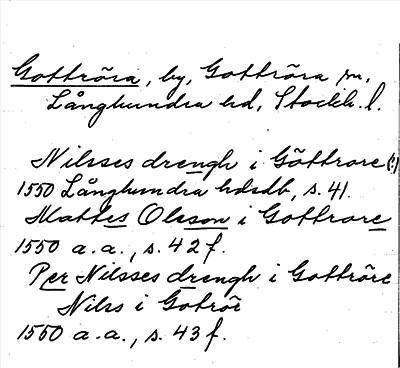 Gottröra, by, Gottröra sn,
Långhundra hd, Stockh. l.
Nilsses drengh i Göttrore (!)
1550 Långhundra hdsdb, s. 41.
Mattes Olsson i Gottrore
1550 a. a., s. 42 f.
Per Nilsses drengh i Gottröre
Nilss i Gotrör
1550 a. a., s. 43 f.